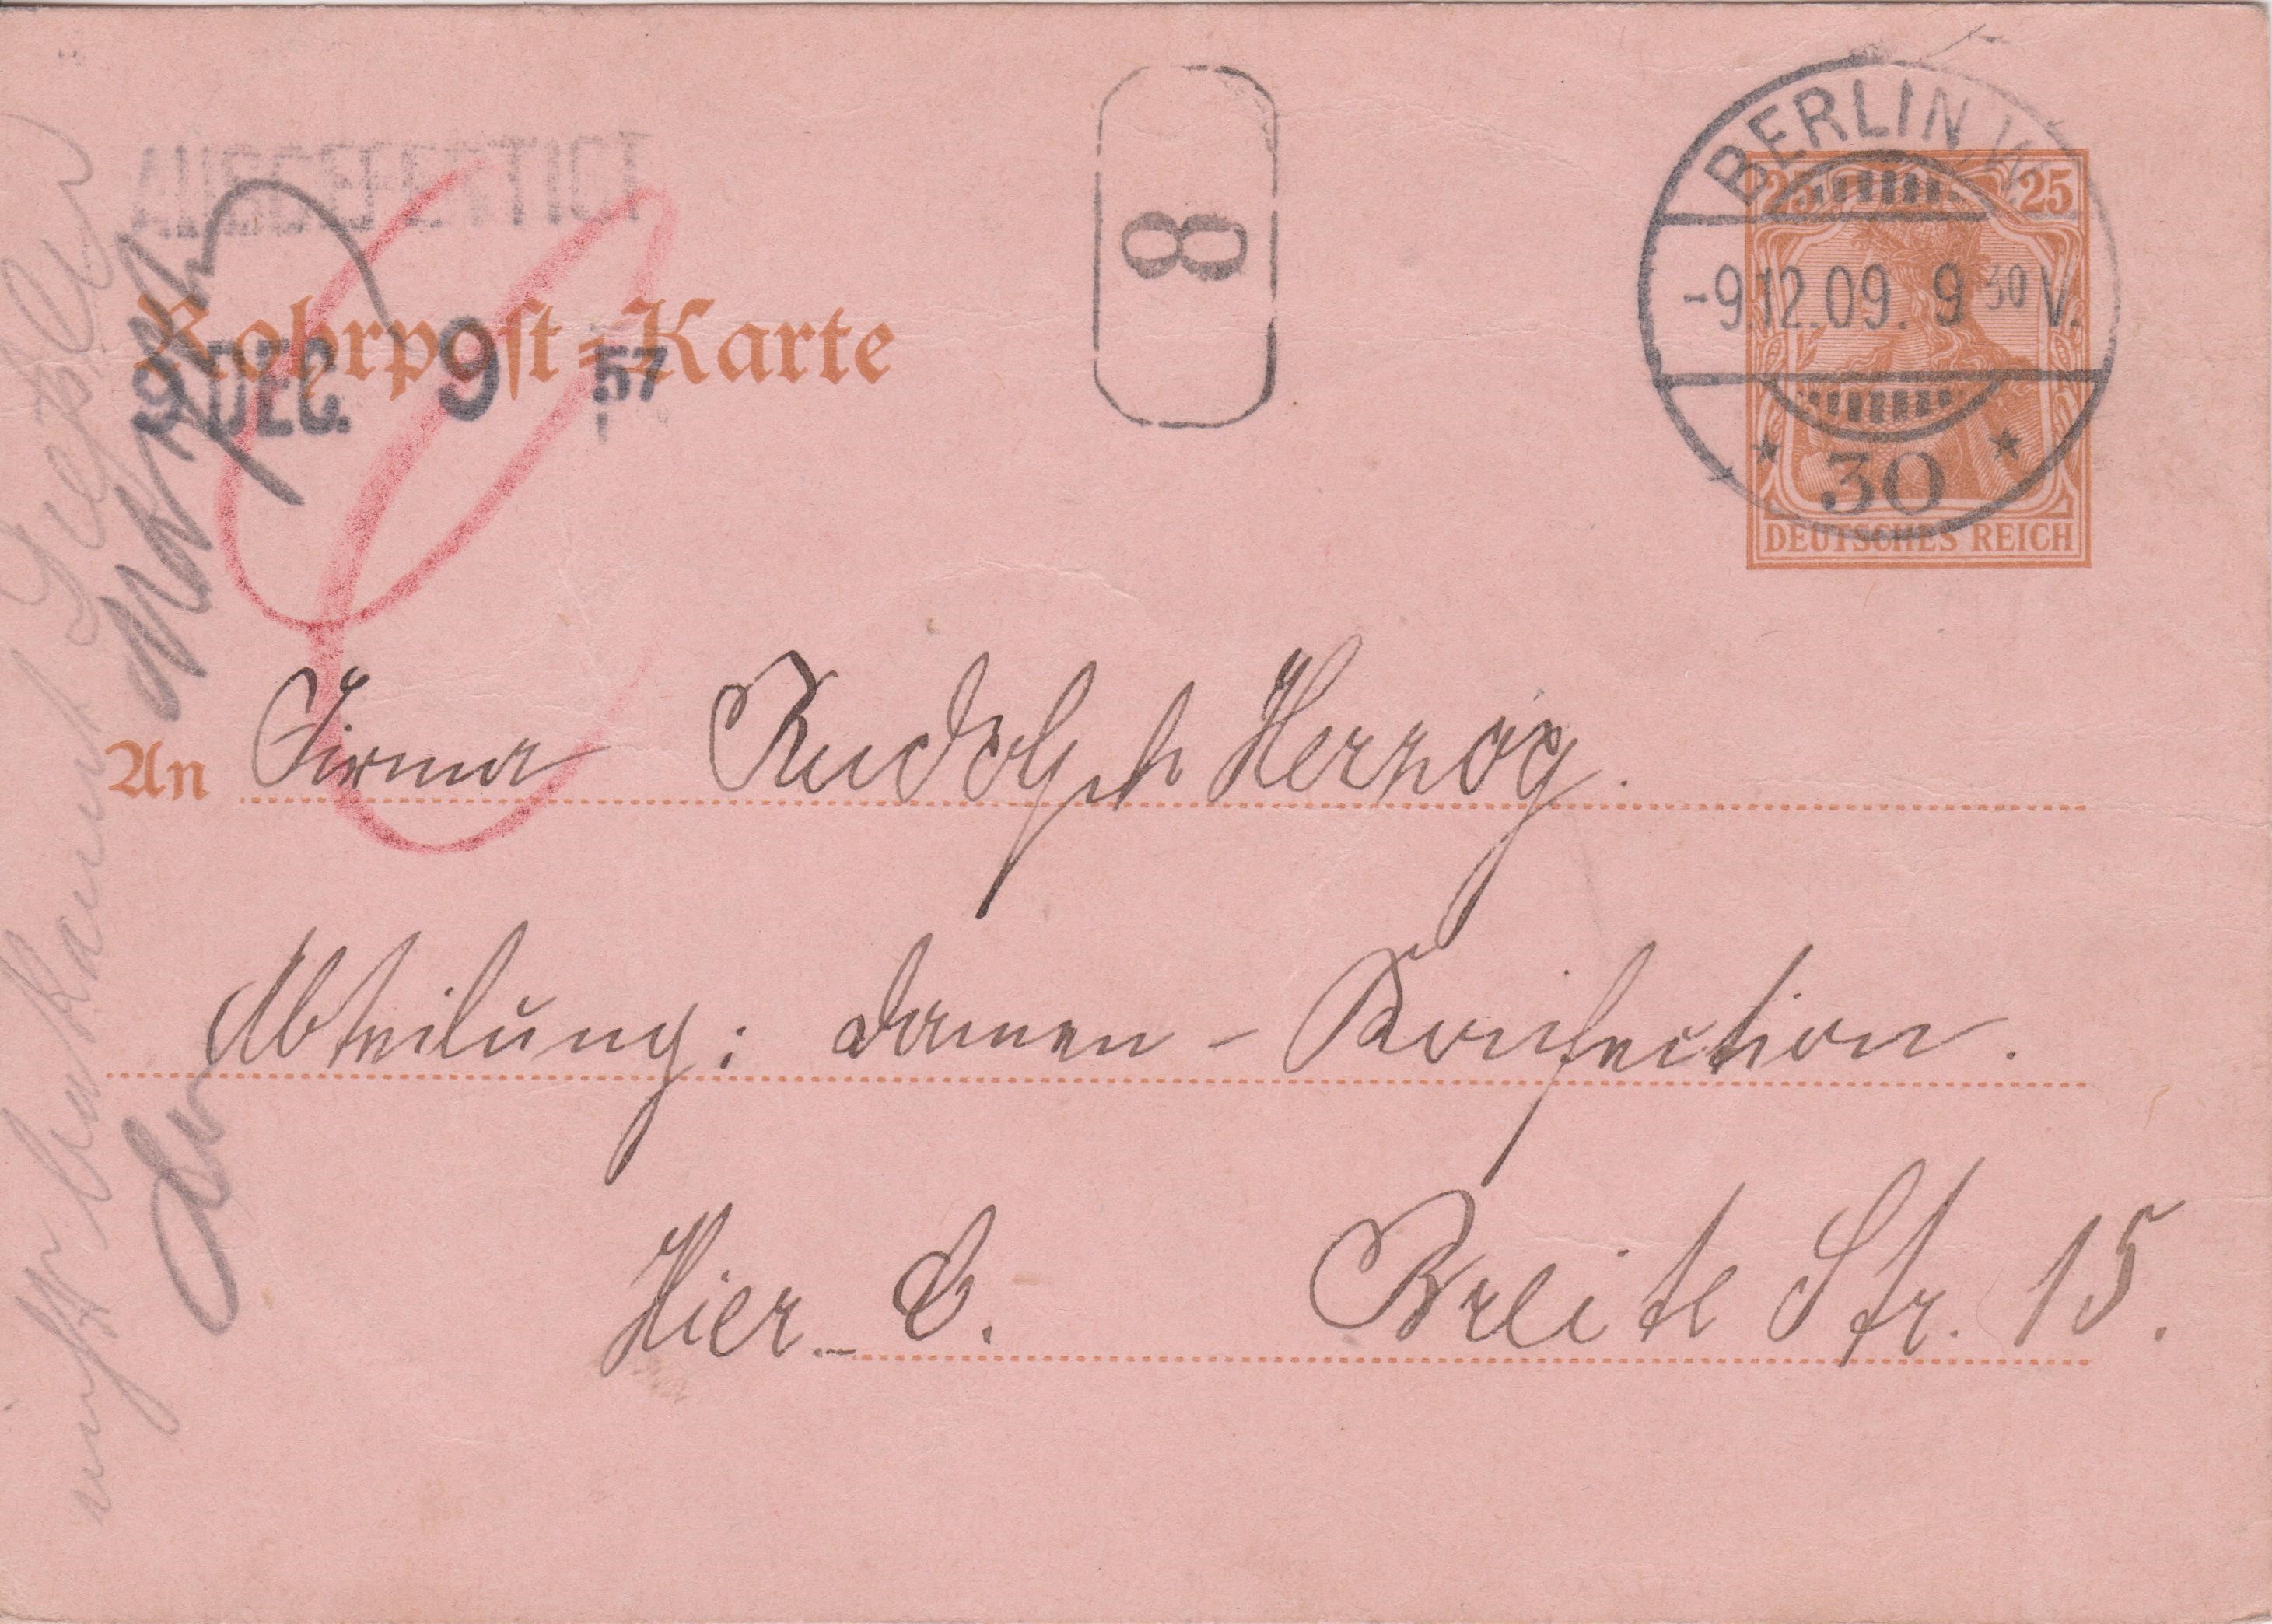 AUSGEFERTIGT
8
BERLIN W.
25 25
-9.12.09. 9 30 V.
* 30 *
DEUTSCHES REICH
Rohrpost-Karte
9 DEC. 9 57
An Firma Rudolph Herzog.
Abteilung: Damen-Konfection.
Hier C. Breite Str. 15.